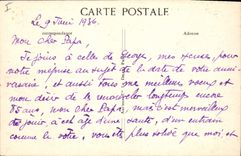 I
CARTE POSTALE
Le 9 Juin 1936.
Mon Cher Papa,
Je joins à celles de            , mes excuses, pour
notre méprise au sujet de la date de votre anni-
versaire, et aussi tous mes meilleurs vœux et
mon désir de le renouveler longtemps encore
ans, mon cher Papa, mais c'est merveilleux
de jouir à cet âge d'une santé, d'un entrain
comme le votre, vous êtes plus solide que moi et